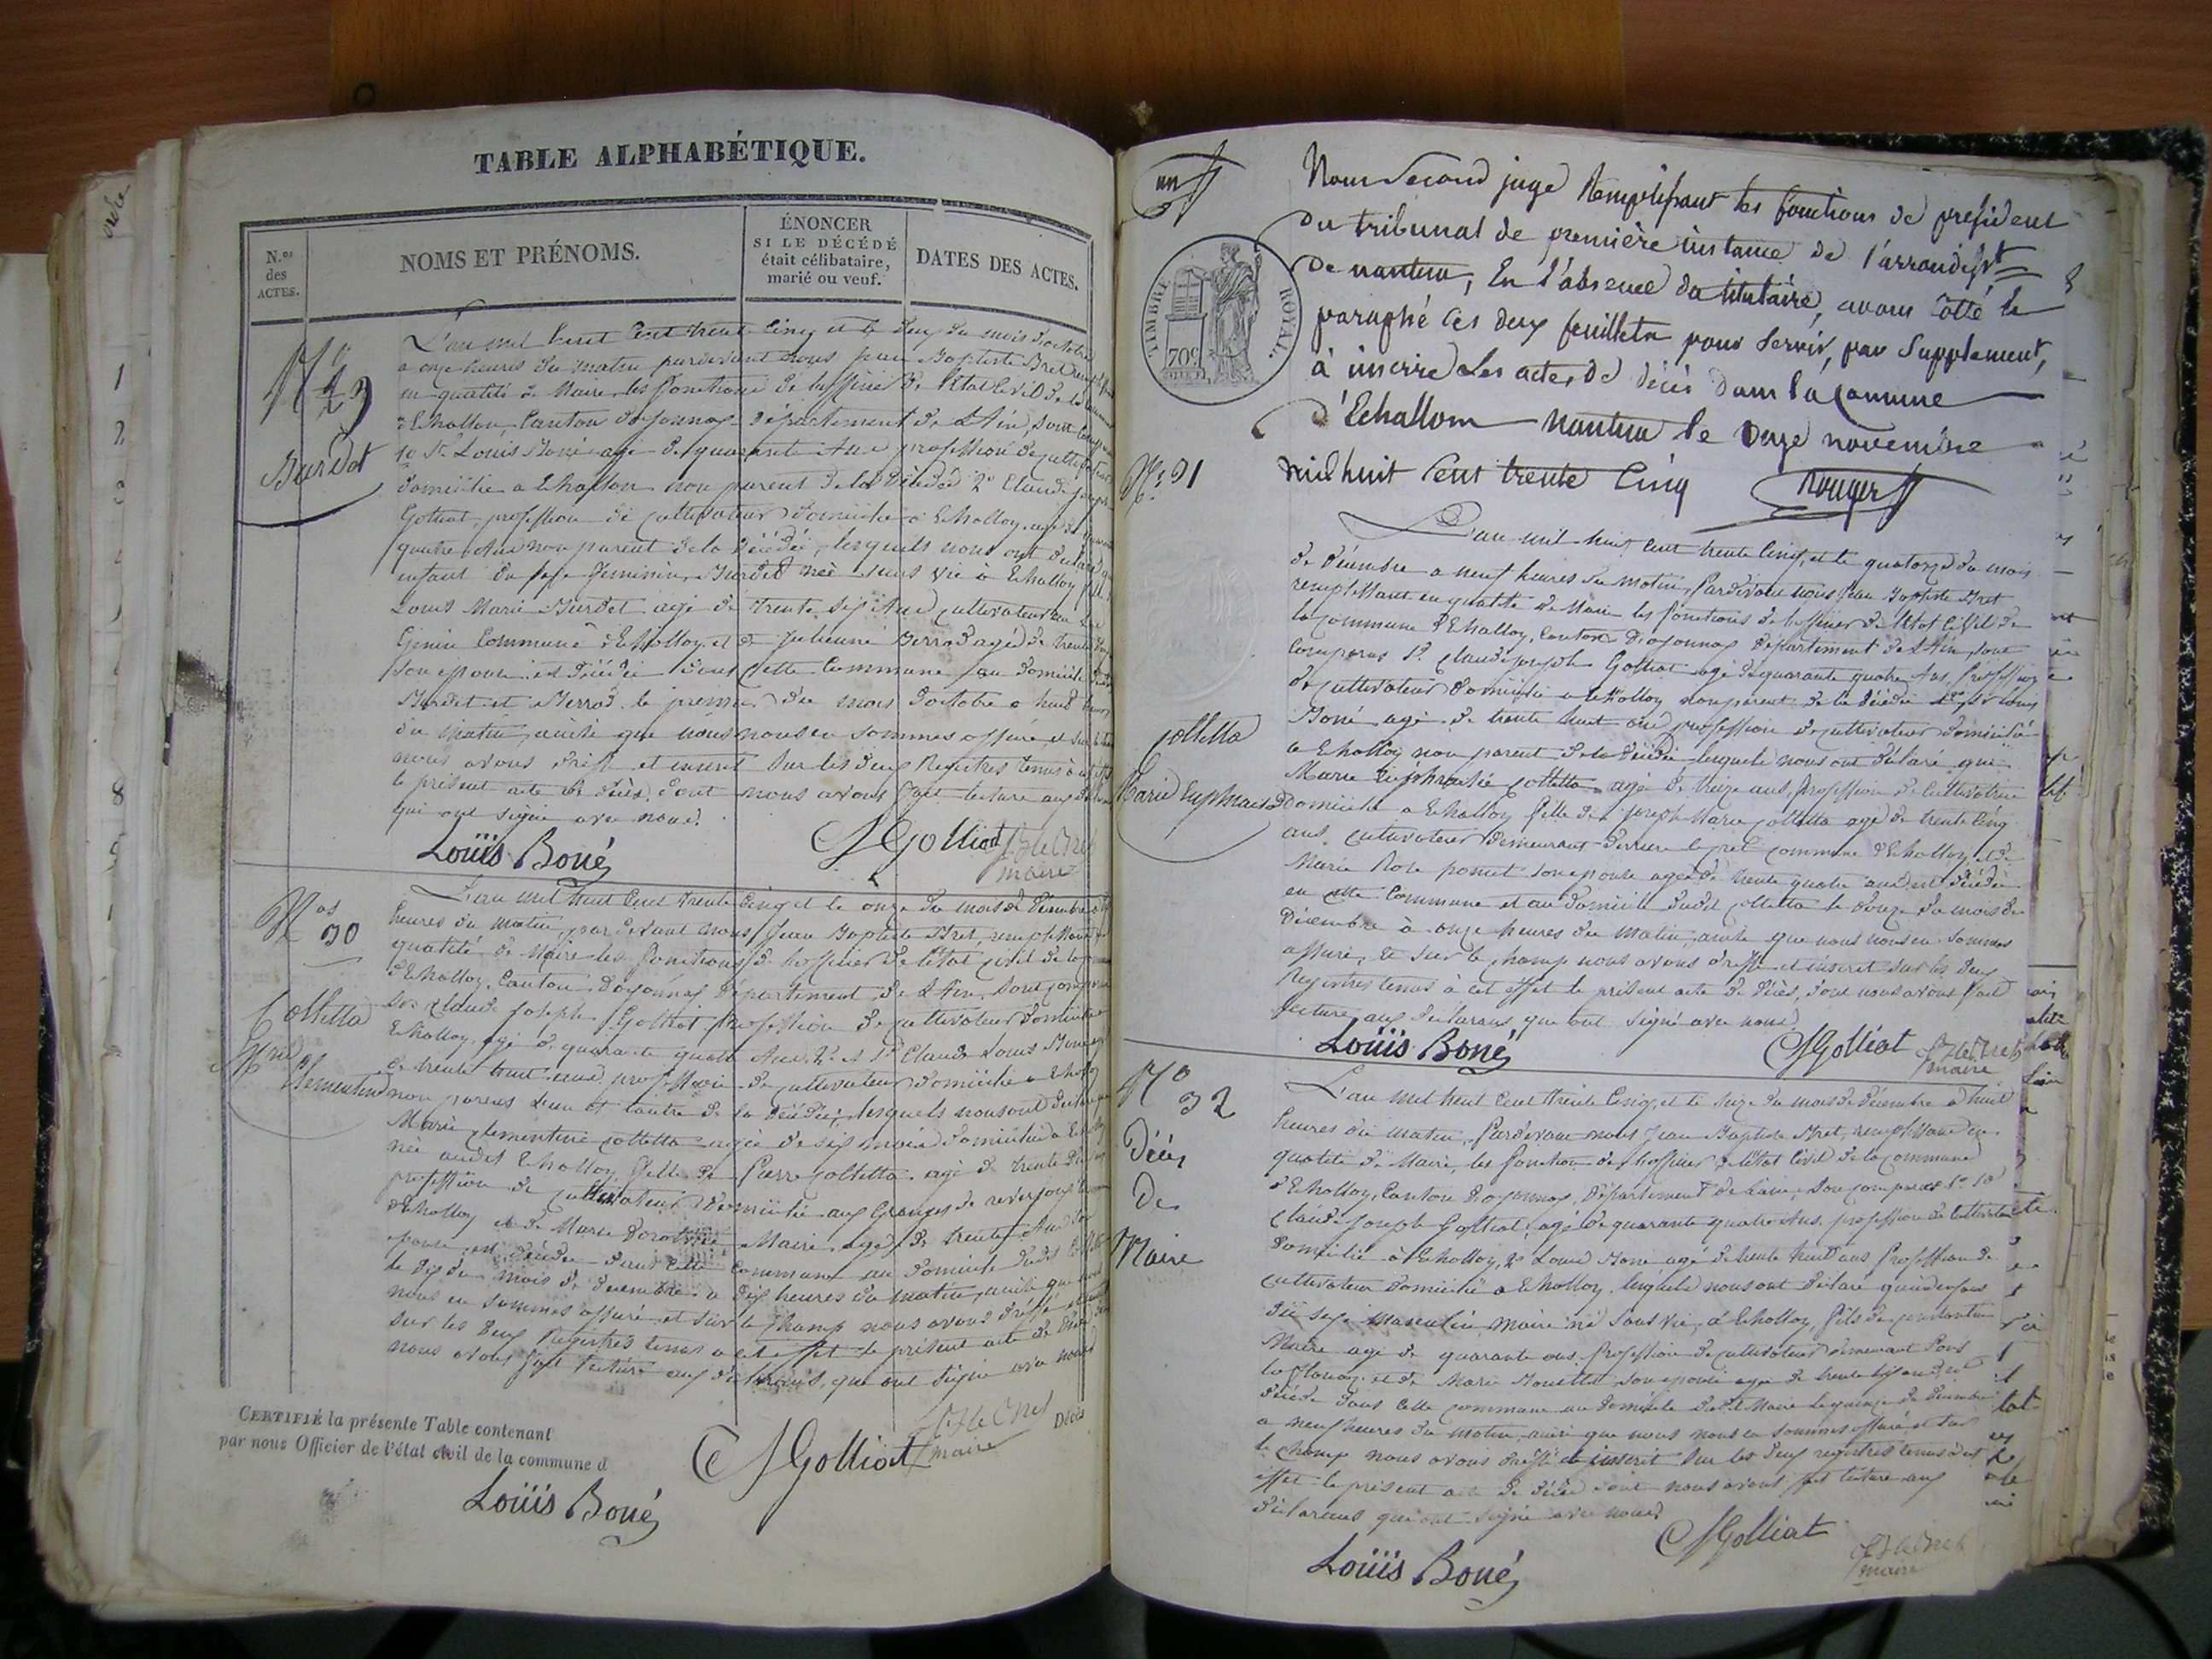 TABLE ALPHABÉTIQUE.
N.os des ACTES.
NOMS ET PRÉNOMS.
ÉNONCER SI LE DÉCÉDÉ était célibataire, marié ou veuf.
DATES DES ACTES.
N° 29
Burdet
L'an mil huit cent trente cinq et le deux du mois d'octobre
a onze heures du matin pardevant nous Jean Baptiste Bret
en qualité de Maire les fonctions de l'officier de l'état civil de la
d'Echallon Canton d'oyonnax département de l'Ain, sont
1o Sr Louis Boné agé de quarante Ans profession de cultivateur
domicilié a Echallon non parent de la Décédée 2o Claude joseph
Golliat, profession de cultivateur domicilié à Echallon agé de
quatre Ans non parent de la Décédée, lesquels nous ont déclaré
enfant du sexe féminin Burdet née sans vie à Echallon fille
Louis Marie Burdet agé de trente six Ans cultivateur au
Commune d'Echallon et de Julienne Berrod agée de trente
son épouse est Décédée dans cette Commune au domicile
Burdet et Berrod le premier du mois d'octobre a huit heures
du matin, ainsi que nous nous en sommes assuré, et sur le
nous avons dressé et inscrit sur les deux Registres tenus à cet
le présent acte de Décès, dont nous avons fait lecture aux
qui ont signé avec nous.
Louis Boné
Golliat
maire
Nos 30
Colletta
Marie Clementine
L'an mil huit cent trente cinq et le onze du mois de décembre
heures du matin, par devant nous Jean Baptiste Bret, remplissant
qualité de Maire les fonctions de l'officier de l'état civil de la
d'Echallon, Canton d'oyonnax Département de l'Ain, sont
Claude Joseph Golliat profession de cultivateur domicilié
Echallon agé de quarante quatre Ans, 2o et Sr Claude Louis Boné
de trente huit ans profession de cultivateur domicilié a Echallon
non parens l'un et l'autre de la Décédée, lesquels nous ont déclaré
Marie Clementine Colletta agée de six mois domiciliée a
née audit Echallon fille de Pierre Colletta agé de trente
profession de cultivateur domicilié aux Granges de
d'Echallon et de Marie Dorothée Maire agée de trente Ans
épouse est décédée dans cette Commune au domicile dudit
le dix du mois de Décembre a dix heures du matin, ainsi que nous
nous en sommes assuré, et sur le champ nous avons dressé et
sur les deux Registres tenus a cet effet le présent acte de Décès
nous avons fait lecture aux déclarans, qui ont signé avec nous
CERTIFIÉ la présente Table contenant
par nous Officier de l'état civil de la commune d
Décès
Golliat
maire
Louis Boné
un
TIMBRE ROYAL.
70c
Nous Second juge Remplissant les fonctions de président
du tribunal de première instance de l'arrondisst
de nantua, En l'absence du titulaire, avons Cotté &
paraphé ces deux feuillets pour Servir, par Supplément,
à inscrire Les actes de décès dans la commune
d'Echallon nantua le onze novembre
mil huit Cent trente Cinq
Rouyer
No 31
Colletta
Marie Euphrasie
L'an mil huit cent trente cinq, et le quatorze du mois
de Décembre a neuf heures du matin, Pardevant nous Jean Baptiste Bret
remplissant en qualité de Maire les fonctions de l'officier de l'état Civil de
la commune d'Echallon, Canton d'oyonnax Département de l'Ain, sont
Comparus 1o Claude joseph Golliat agé de quarante quatre Ans, profession
de cultivateur domicilié a Echallon non parent de la Décédée 2o Sr Louis
Boné agé de trente huit ans profession de cultivateur domicilié
a Echallon non parent de la Décédée lesquels nous ont déclaré que
Marie Euphrasie Colletta agée de treize ans, profession de Cultivatrice
domiciliée a Echallon fille de joseph Marie Colletta agé de trente cinq
ans cultivateur demeurant derrière le pré commune d'Echallon, et de
Marie Rose poncet son épouse agée de trente quatre ans est décédée
en cette Commune et au domicile dudit Colletta le douze du mois de
Décembre à onze heures du matin, ainsi que nous nous en sommes
assuré, et sur le champ nous avons dressé et inscrit sur les deux
Registres tenus à cet effet le présent acte de Décès, dont nous avons fait
lecture aux déclarans qui ont signé avec nous
Louis Boné
Golliat
maire
No 32
Décès
De
Maire
L'an mil huit cent trente cinq, et le seize du mois de décembre a huit
heures du matin, Pardevant nous Jean Baptiste Bret, remplissant en
qualité de Maire, les fonctions de l'officier de l'état Civil de la commune
d'Echallon, Canton d'oyonnax, Département de l'ain, sont comparus 1o Sr
Claude Joseph Golliat, agé de quarante quatre Ans, profession de cultivateur
domicilié à Echallon, 2o Louis Boné agé de trente huit ans Profession de
cultivateur domicilié a Echallon, lesquels nous ont déclaré qu'un enfant
du sexe masculin, maire né sans vie, à Echallon, fils de Constantin
Maire agé de quarante ans, profession de cultivateur demeurant
et de Marie son épouse agée de trente six ans est
décédé dans cette commune au domicile dudit Maire le quinze de Décembre
a neuf heures du matin, ainsi que nous nous en sommes assuré et sur
le champ nous avons dressé et inscrit sur les deux registres tenus a cet
effet le présent acte de décès dont nous avons fait lecture aux
déclarans qui ont signé avec nous
Louis Boné
Golliat
maire